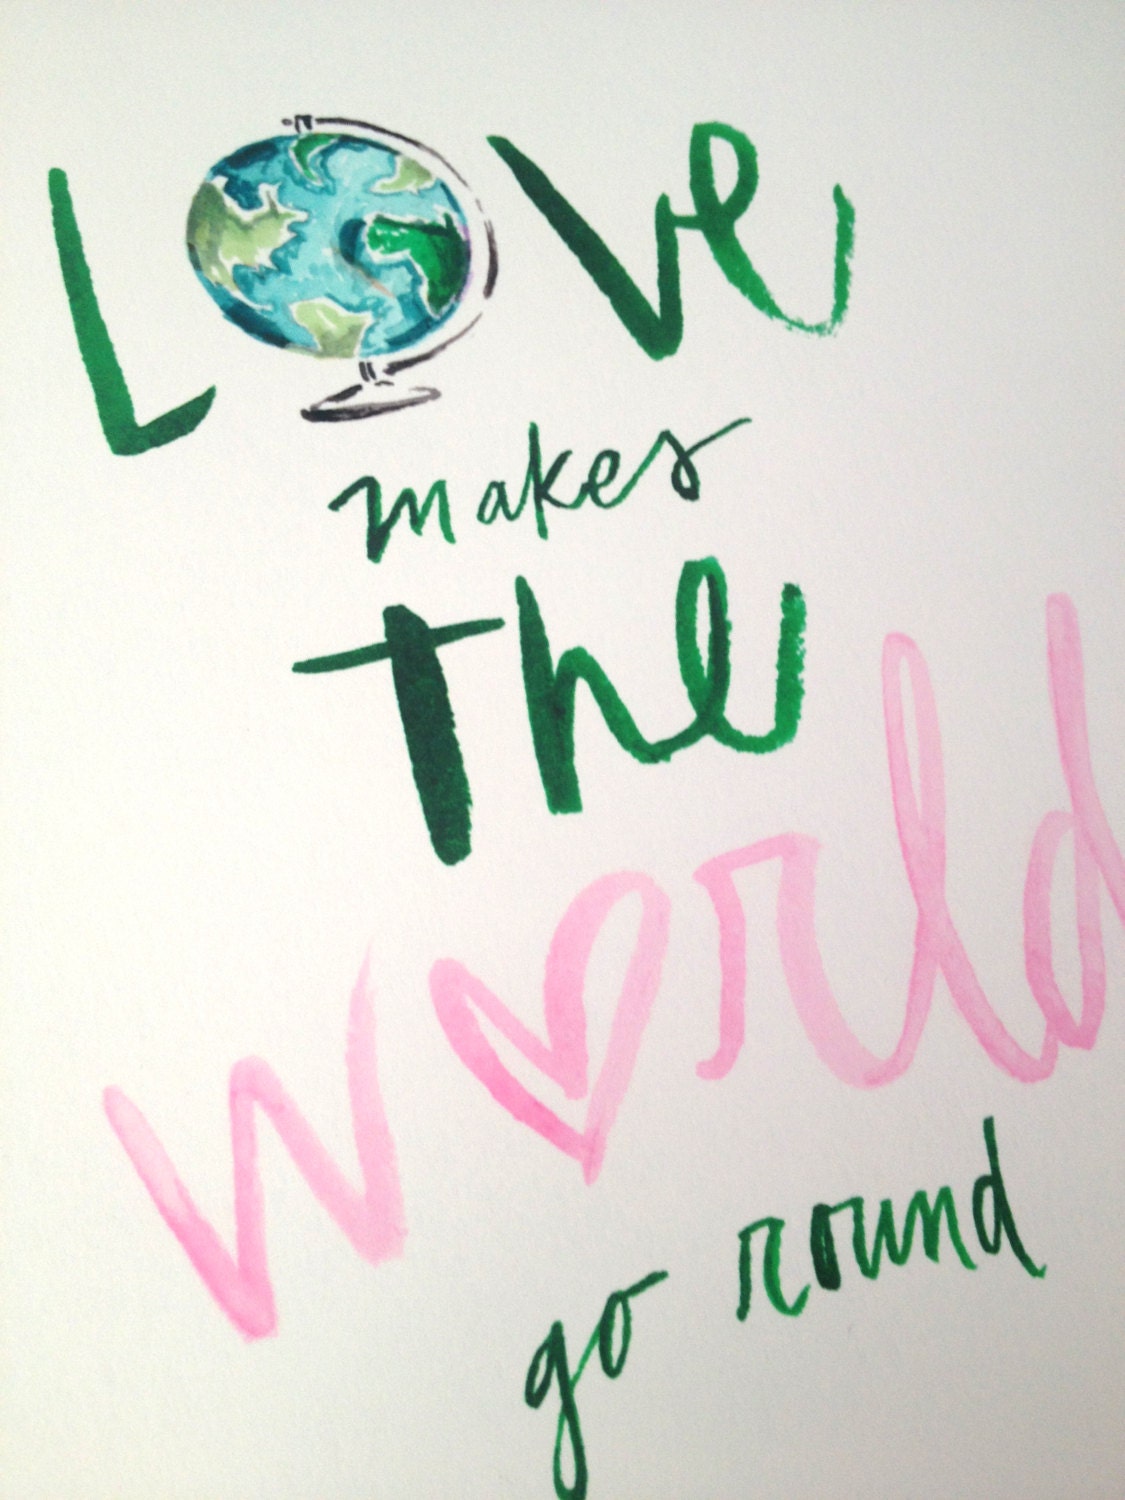 Love
makes
The
World
go round